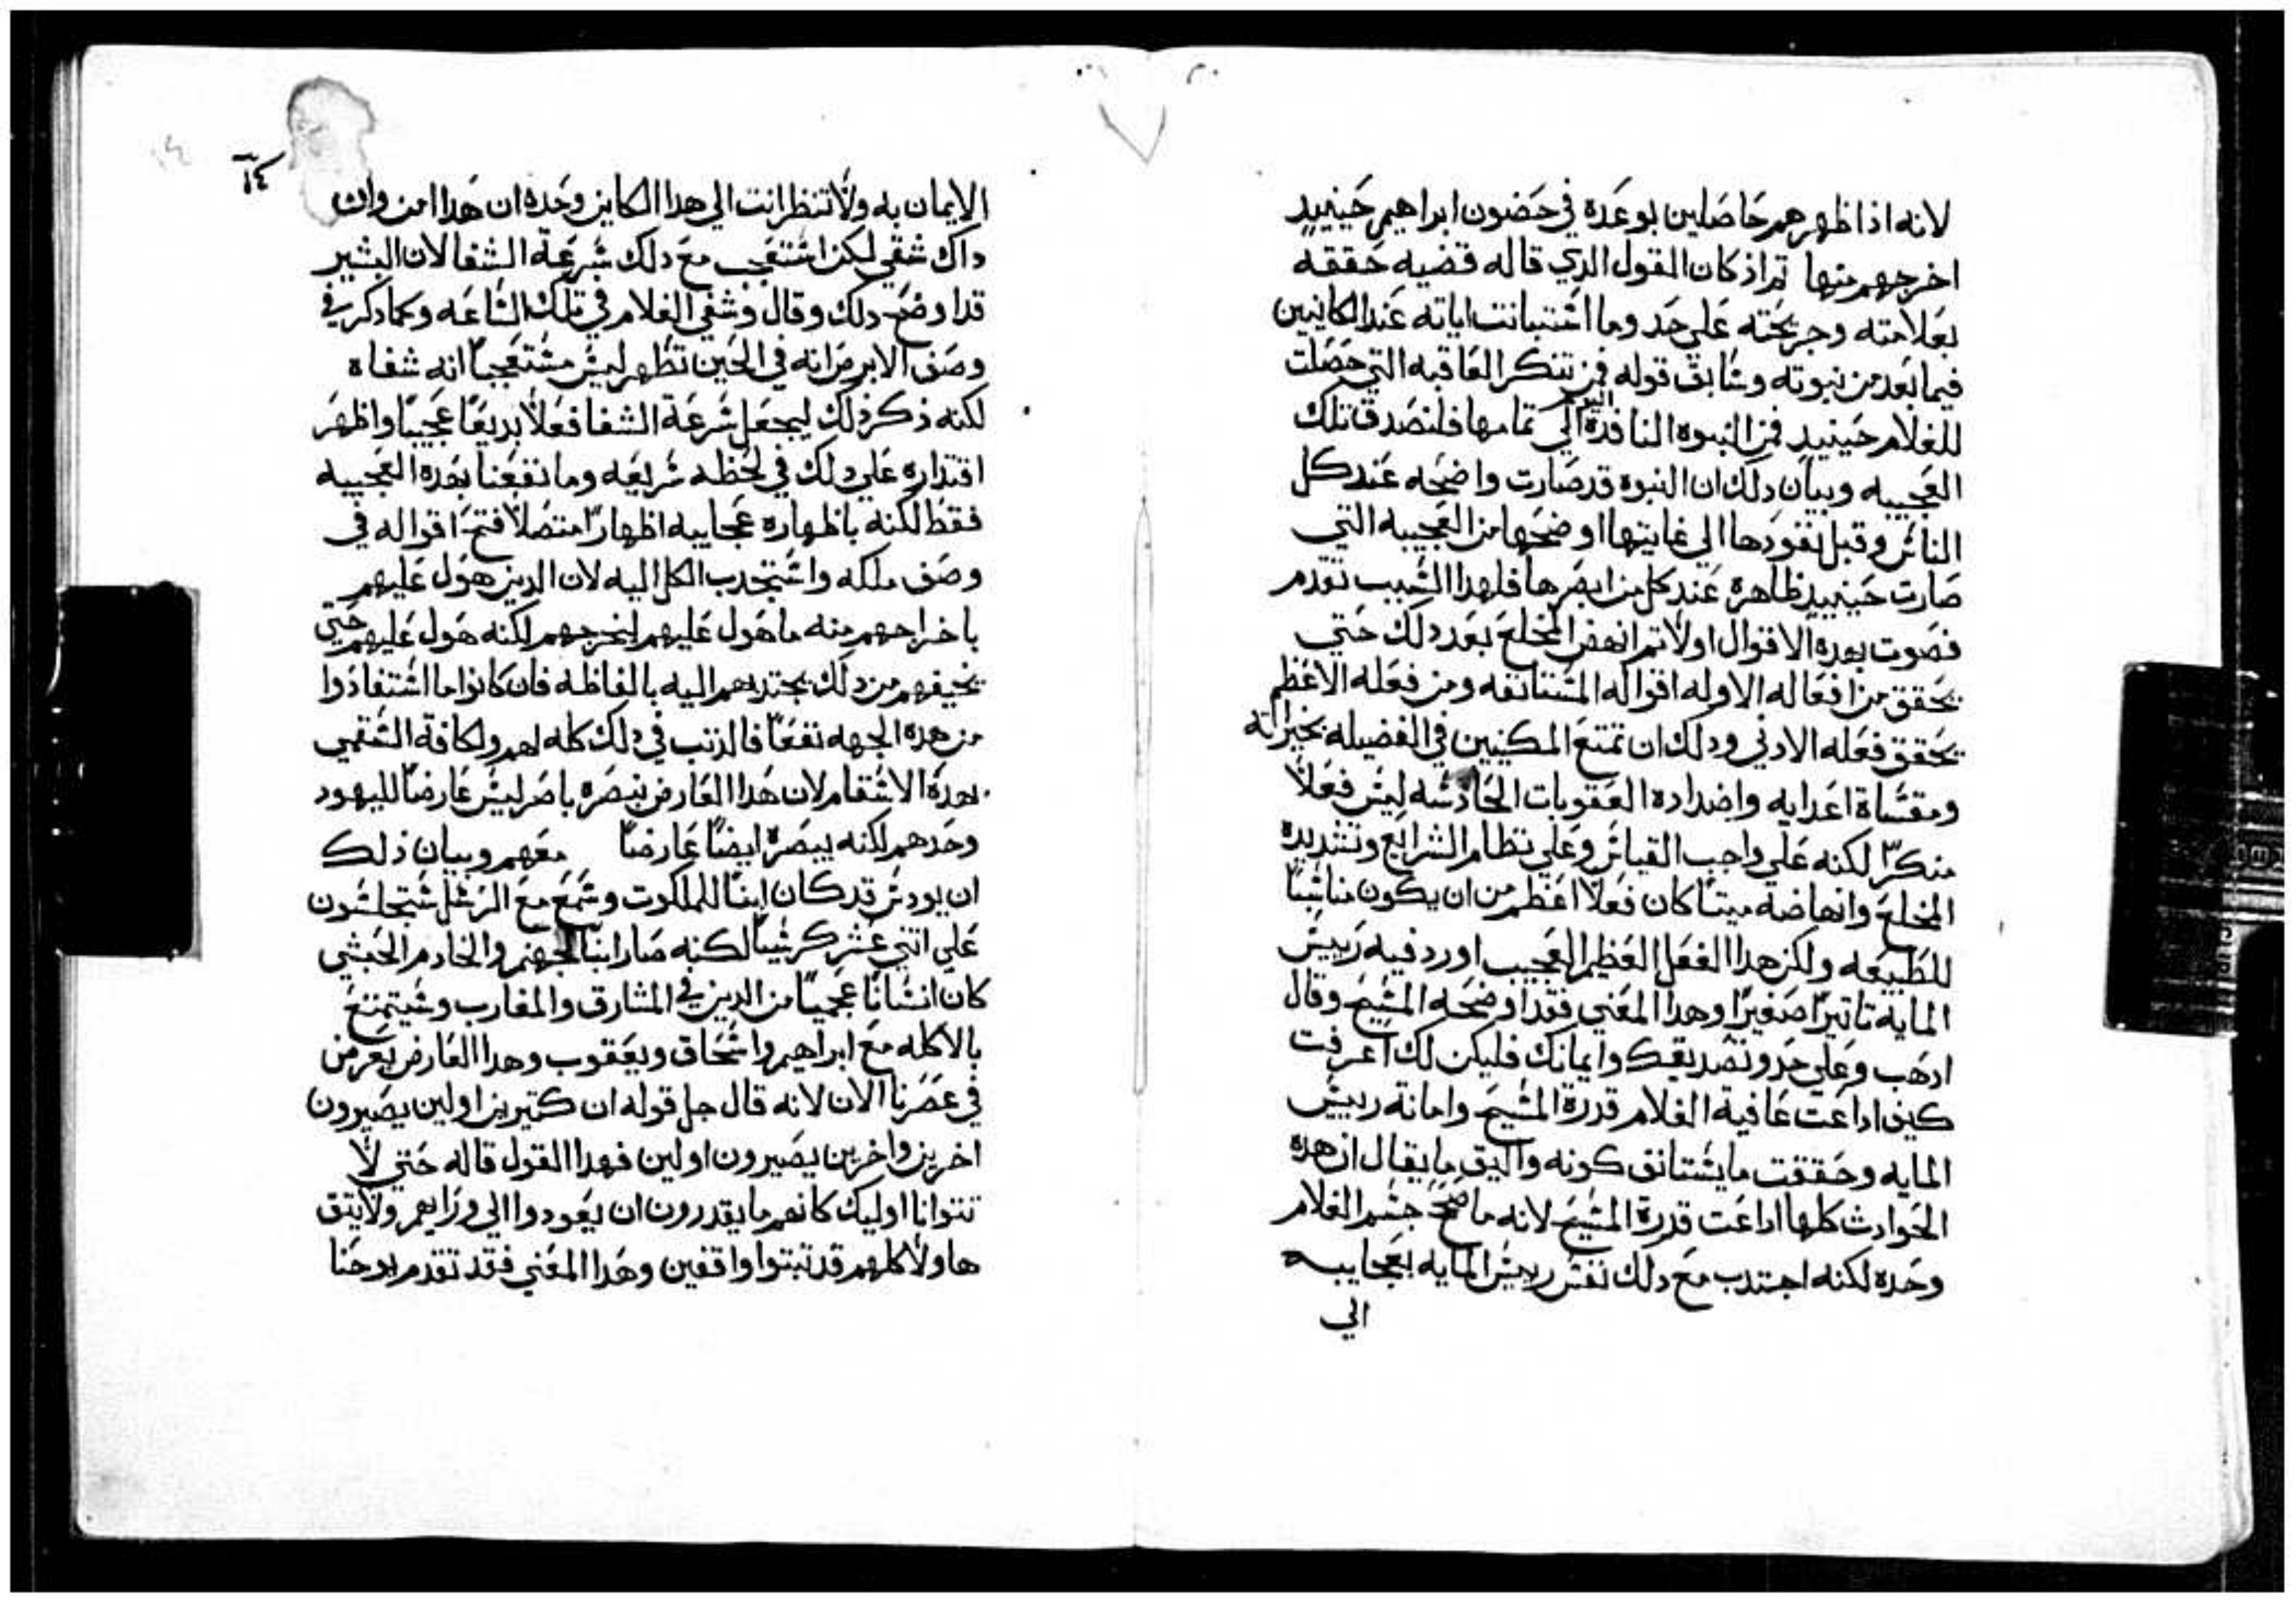 لانه اذا ظهرهم حاصلين بوعده في حضون ابراهيم حينيد
اخرجهم منها تم اذ كان القول الدي قاله قضيه حققه
بعلامته وجريحته علي حد وما اشتبانت اياته عند الكاينين
فيما بعد من نبوته وشابق قوله فمن تنكر العاقبه التي حصلت
للغلام حينيد فمن النبوه النافده الي تمامها فلنصدق تلك
العجيبه وبيان دلك ان النبوه قد صارت واضحه عند كل
الناش وقبل نفودها الي غايتها اوضحها من العجيبه التي
صارت حينيد ظاهرة عند كل من ابصرها فلهدا الشبب تقدم
فصوت بهده الاقوال اولا تم انهض المخلع بعد دلك حتي
يحقق من افعاله الاوله اقواله المشتانفه ومن فعله الاعظم
يحقق فعله الادني ودلك ان تمتع المكنيين في الفضيله بخيراته
ومقشاة اعدايه واضداده العقوبات الحادشه ليش فعلاً
منكراً لكنه علي واجب القياش وعلي نظام الشرايع وتشديده
المخلع وانهاضه ميتاً كان فعلاً اعظم من ان يكون مناشباً
للطبيعه ولكن هدا الفعل العظيم العجيب اورد فيه رييش
المايه تاتيراً صغيراً وهدا المعني فقد اوضحه المشيح وقال
ادهب وعلي حدو تصديقك وايمانك فليكن لك اعرفت
كيف اداعت عافية الغلام قدرة المشيح وامانة رييش
المايه وحققت ما يشتانق كونه واليق ما يقال ان هده
الحوادث كلها اداعت قدرة المشيح لانه ما صحح جشم الغلام
وحده لكنه اجتدب مع دلك نفش رييش المايه بعجايبه
الي
١٤
الايمان به ولا تنظر انت الي هدا الكاين وحده ان هدا امن وان
داك شفي لكن اشتعجب مع دلك شرعة الشفا لان البشير
قد اوضح دلك وقال وشفي الغلام في تلك الشاعه وكما دكر في
وصف الابرص انه في الحين تطهر ليش مشتعجباً انه شفاه
لكنه ذكر ذلك ليجعل شرعة الشفا فعلاً بديعاً عجيباً واظهر
اقتداره علي دلك في لحظه شريعه وما نفعنا بهده العجيبه
فقط لكنه باظهاره عجايبه اظهاراً متصلاً فتح اقواله في
وصف ملكه واشتجدب الكل اليه لان الدين هول عليهم
باخراجهم منه ما هول عليهم ليخرجهم لكنه هول عليهم حتي
يخيفهم من دلك يجتديهم اليه بالفاظه فان كانوا ما اشتفادوا
من هده الجهه نفعاً فالدنب في دلك كله لهم ولكافة الشقمي
بهده الاشقام لان هدا العارض نبصره باصر ليش عارضاً لليهود
وحدهم لكنه يبصره ايضاً عارضاً معهم وبيان ذلك
ان يودش قد كان ابناً للملكوت وشمع مع الرشل شتجلشون
علي اتني عشر كرشياً لكنه صار ابناً لجهنم والخادم الحبشي
كان انشاناً عجمياً من الدين في المشارق والمغارب وشيتمتع
بالاكله مع ابراهيم واشحاق ويعقوب وهدا العارض يعرض
في عصرنا الان لانه قال جل قوله ان كتيرين اولين يصيرون
اخرين واخرين يصيرون اولين فهدا القول قاله حتي لا
تتوانا اوليك كانهم ما يقدرون ان يعودوا الي ورايهم ولا يتق
هاولا كلهم قد تبتوا واقفين وهدا المعني فقد تقدم يوحنا